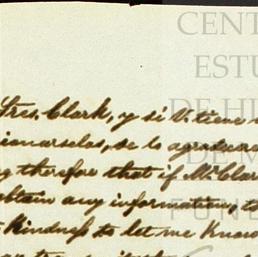 CENT
ESTU
DE HI
DE M
FUN
Sres. Clark, y si V. tiene
cionarselas, se lo agradecere
therefore that if Mr. Clar
obtain any information, to
kindness to let me know